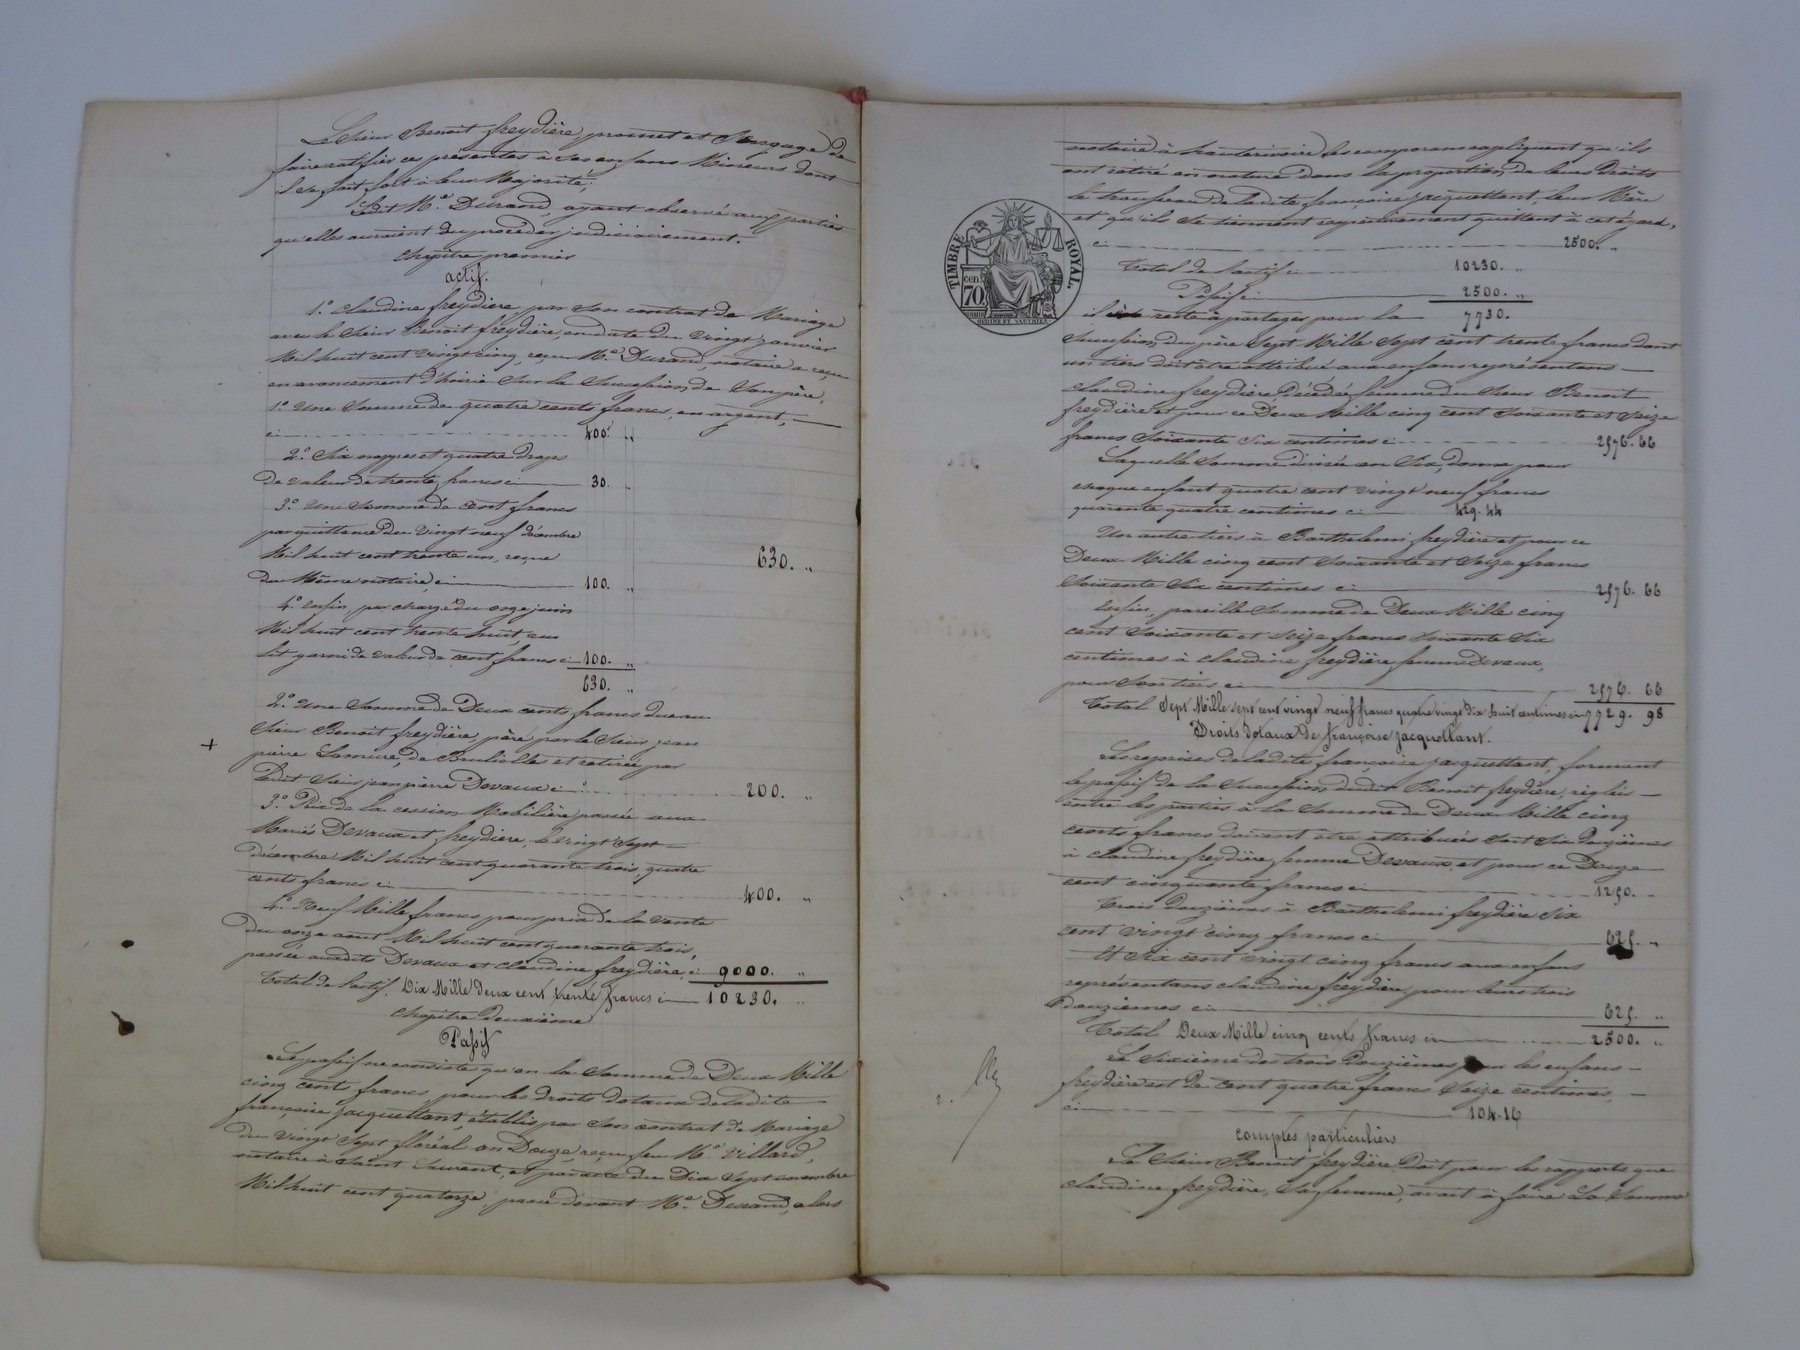 Le sieur Benoit freydière promet et s'engage de
faire ratifier ces présentes à ses enfans Mineurs dont
il se fait fort à leur Majorité;
Ledit Me. Durand, ayant observé aux parties
qu'elles auraient du procéder judiciairement.
Chapitre premier
actif.
1.° Claudine freydiere, par son contrat de Mariage
avec le sieur Benoit freydière, en date du vingt janvier
Mil huit cent vingt cinq, reçu Me. Durand, notaire a reçu
en avancement d'hoirie sur la succession de son père,
1.° Une Somme de quatre cents francs, en argent,
ci 400. "
2.° Six nappes et quatre draps
de valeur de trente francs ci 30. "
3.° Une Somme de Cent francs
par quittance du vingt neuf décembre
Mil huit cent trente un, reçue 630. "
du Même notaire, ci 100. "
4.° Enfin, par charge du onze juin
Mil huit cent trente huit, un
lit garni de valeur de cent francs ci 100. "
630. "
2.° Une Somme de Deux cents francs due au
Sieur Benoit freydière, père par le Sieur jean
+
pierre Lamure, de Brulioles et retirée par
Ledit Sieur jean pierre Devaux ci 200. "
3.° Prix de la cession Mobilière passée aux
Mariés Devaux et freydiere, le vingt Sept
décembre Mil huit cent quarante trois, quatre
cents francs ci 400. "
4.° Neuf Mille francs pour prix de la vente
du onze aout Mil huit cent quarante trois,
passée auxdits Devaux et Claudine freydière, ci 9000. "
Total de l'actif. Dix Mille deux cent trente francs ci 10230. "
Chapitre Deuxième
Passif
Le passif ne consiste qu'en la Somme de Deux Mille
cinq cents francs, pour les droits dotaux de ladite
françoise jacquettant, établis par Son contrat de Mariage
du vingt Sept floréal an Douze reçu feu Me. Villard,
notaire à Saint Laurent, et par acte du Dix Sept novembre
Mil huit cent quatorze, passé devant Me. Durand, alors
notaire à hauterivoire les comparans expliquent qu'ils
ont retiré en nature dans la proportion de leurs Droits
le trousseau de ladite françoise jacquettant, leur Mère
et qu'ils se tiennent respectivement quittent à cet égard,
ci 2500. "
TIMBRE ROYAL.
70
Total de l'actif ci 10230. "
Passif ci 2500. "
il reste à partager pour la 7730.
Succession du père Sept Mille Sept cent trente francs dont
un tiers doit être attribué aux enfans représentans
Claudine freydière, Décédée femme du Sieur Benoit
freydière et pour ce Deux Mille cinq cent Soixante et Seize
francs Soixante Six centimes ci 2576. 66
Laquelle Somme divisée en Six, donne pour
chaque enfant quatre cent vingt neuf francs
quarante quatre centimes ci 429. 44
Un autre tiers à Barthelemi freydière et pour ce
Deux Mille cinq cent Soixante et Seize francs
Soixante Six centimes ci 2576. 66
Enfin, pareille Somme de Deux Mille cinq
cent Soixante et Seize francs Soixante Six
centimes à Claudine freydière femme Devaux,
pour Son tiers ci 2576. 66
Total Sept Mille sept cent vingt neuf francs quatre vingt dix huit centimes ci 7729. 98
Droits dotaux de françoise jacquettant.
Les reprises de ladite françoise jacquettant, forment
le passif de la Succession dudit Benoit freydière, réglées
entre les parties à la Somme de Deux Mille cinq
cents francs doivent être attribuées Soit Six Douzièmes
à Claudine freydière, femme Devaux, et pour ce Douze
cent cinquante francs ci 1250. "
Trois Douzièmes à Barthelemi freydière Six
cent vingt cinq francs ci 625. "
Et Six cent vingt cinq francs aux enfans
représentans Claudine freydière, pour leurs trois
Douzièmes ci 625. "
Total Deux Mille cinq cents francs ci 2500. "
Le Sixième des trois Douzièmes pour les enfans
freydière est de Cent quatre francs Seize centimes,
ci 104.16
comptes particuliers
Le Sieur Benoit freydière Doit pour les rapports que
Claudine freydière, Sa femme, avait à faire La Somme